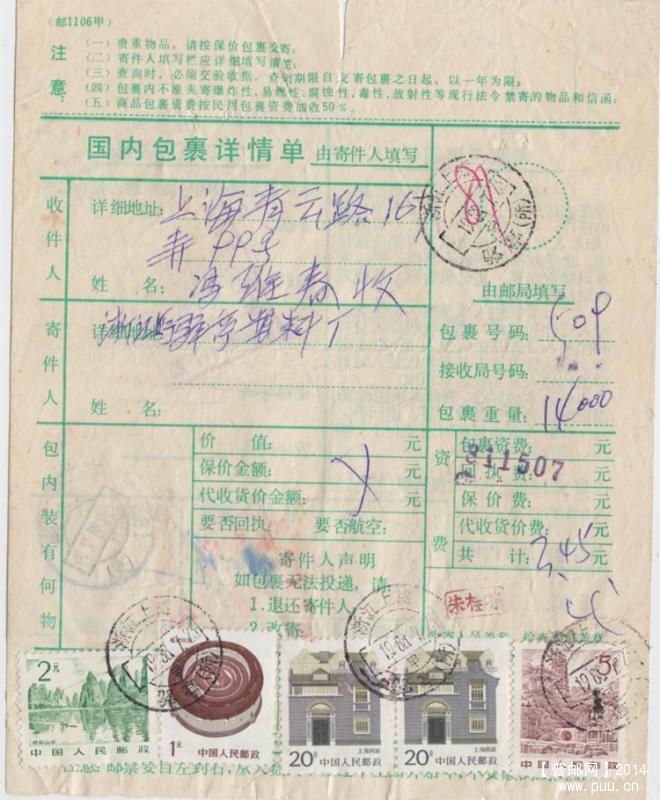 (邮1106甲)
注意:
(一) 贵重物品,请按保价包裹交寄;
(二) 寄件人填写栏应详细填写清楚;
(三) 查询时,必须交验收据。查询期限自交寄包裹之日起,以一年为限;
(四) 包裹内不准夹寄爆炸性、易燃性、腐蚀性、毒性、放射性等现行法令禁寄的物品和信函;
(五) 商品包裹资费按民用包裹资费加收50%。
国内包裹详情单 由寄件人填写
收件人
详细地址: 上海青云路167
弄99号
姓 名: 冯雄春收
由邮局填写
寄件人
详细
姓 名:
包裹号码: 509
接收局号码:
包裹重量: 14000
包内装有何物
价 值: 元
保价金额: 元
代收货价金额: 元
要否回执: 要否航空:
资费
包裹资费: 元
回执费: 元
311507
保价费: 元
代收货价费: 元
共 计: 2.45元
寄件人声明
如包裹无法投递,请
1.退还寄件人
2.改寄
2元
中国人民邮政
1元
中国人民邮政
20分
上海民居
中国人民邮政
20分
上海民居
中国人民邮政
5
【普邮网】2014
www.puu.cn